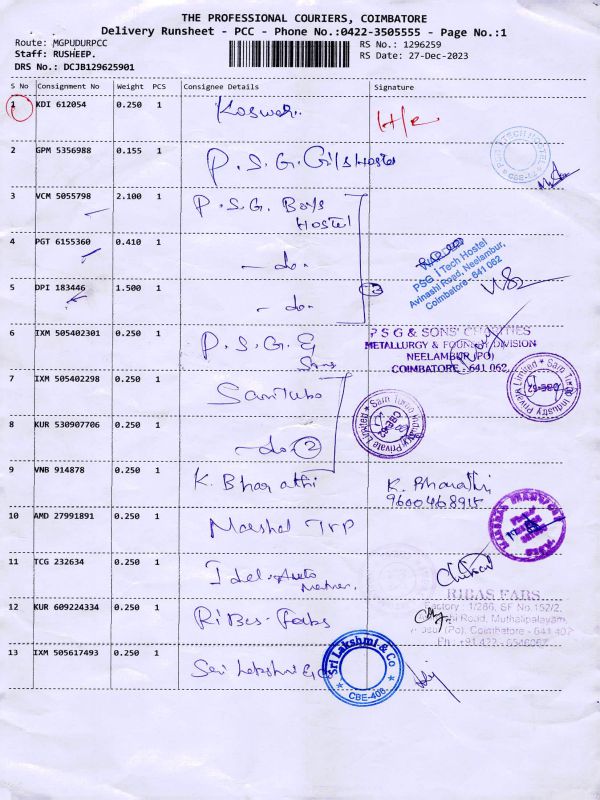 THE PROFESSIONAL COURIERS, COIMBATORE
Delivery Runsheet - PCC - Phone No.:0422-3505555 - Page No.:1
Route: MGPUDURPCC
RS No.: 1296259
Staff: RUSHEEP.
RS Date: 27-Dec-2023
DRS No.: DCJB129625901
S No Consignment No Weight PCS Consignee Details Signature
1 KDI 612054 0.250 1
2 GPM 5356988 0.155 1 P.S.G. Girls Hostel
PSG I TECH HOSTEL
CBE-62
3 VCM 5055798 2.100 1 P.S.G. Boys
Hostel
4 PGT 6155360 0.410 1 - do -
PSG I Tech Hostel
Avinashi Road, Neelambur,
Coimbatore - 641 062
5 DPI 183446 1.500 1 - do - 3
6 IXM 505402301 0.250 1 P.S.G &
Sons
PSG & SONS' CHARITIES
METALLURGY & FOUNDRY DIVISION
NEELAMBUR (PO)
COIMBATORE - 641 062
7 IXM 505402298 0.250 1
Sam Turbo Industry Private Limited
CBE-62
Sam Turbo Industry Private Limited
CBE-62
8 KUR 530907706 0.250 1 - do - 2
9 VNB 914878 0.250 1 K. Bharathi K. Bharathi
9600468915
10 AMD 27991891 0.250 1 Marshal
11 TCG 232634 0.250 1 Ideal Auto
12 KUR 609224334 0.250 1 Ribas Fabs
RIBAS FABS
Factory : 1/286, SF No.152/2,
Road, Muthalipalayam,
(Po), Coimbatore - 641 402
13 IXM 505617493 0.250 1 Sri Lakshmi & Co
Sri Lakshmi & Co
CBE-406.